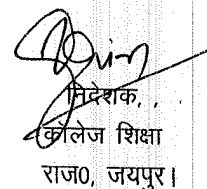 निदेशक,
कॉलेज शिक्षा
राज0, जयपुर।